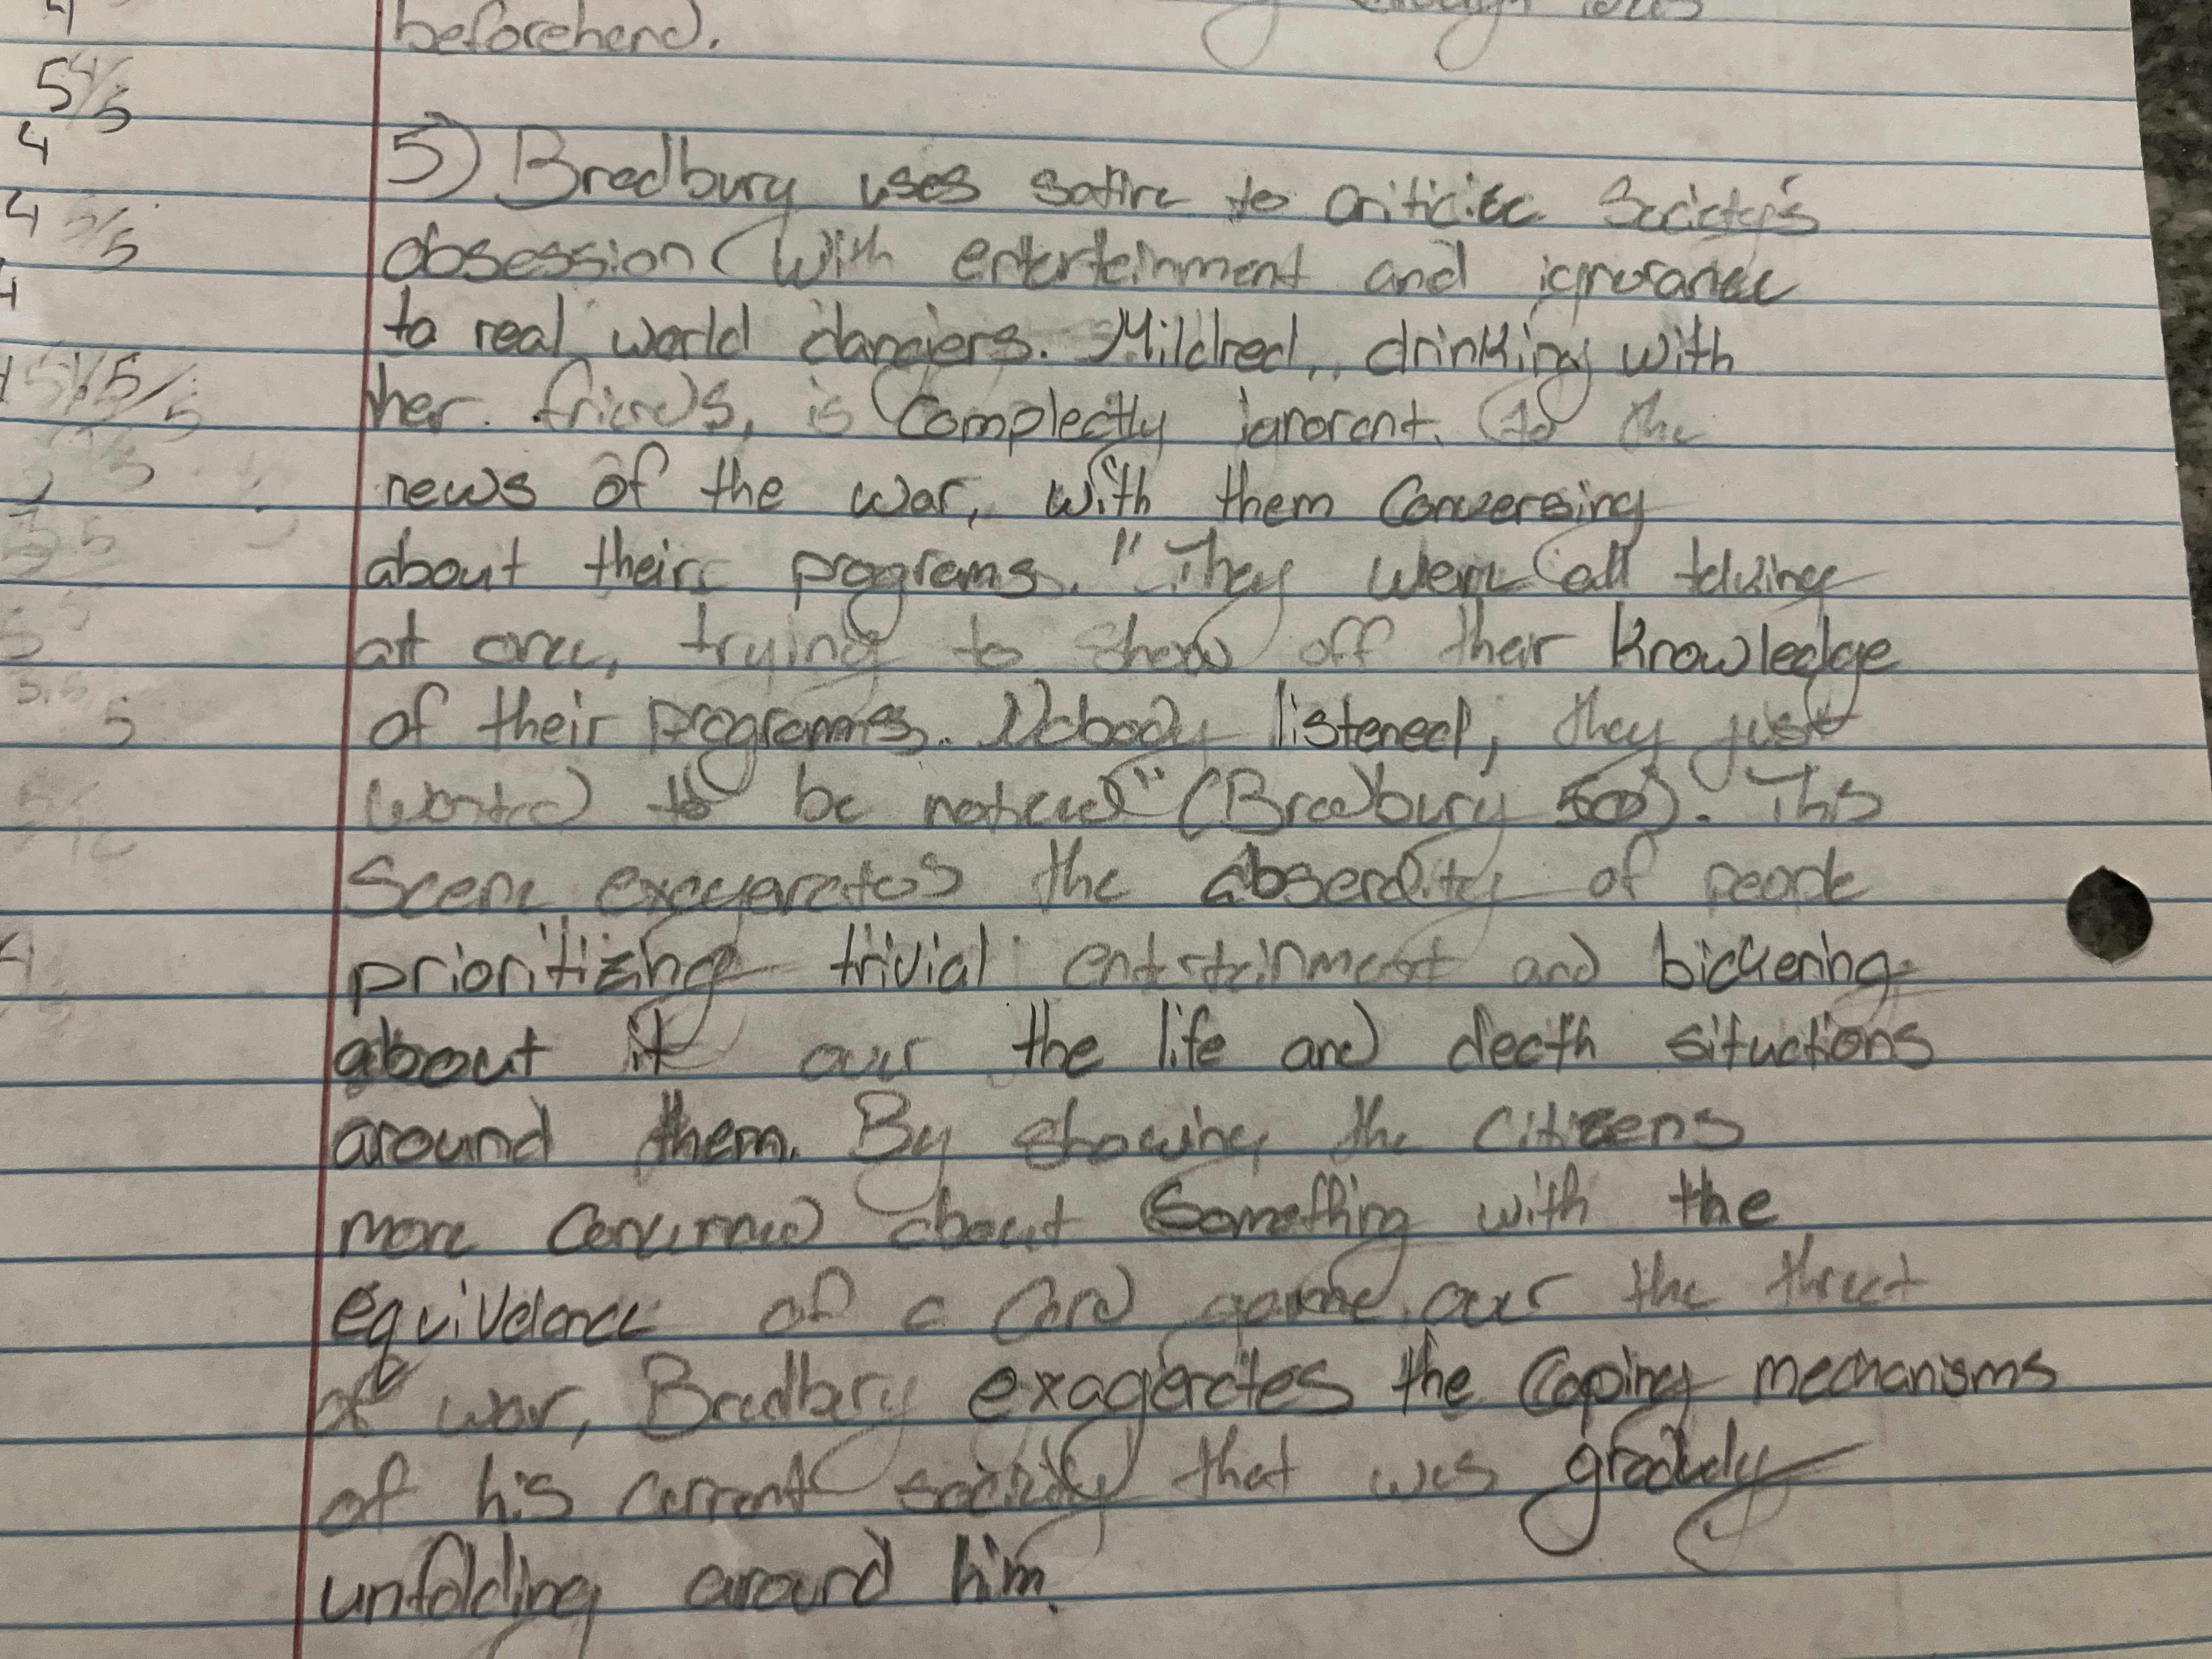 4
beforehend.
5 4/5
4
5) Bradbury uses satire to criticise Society's
4 5/5
obsession with entertainment and ignorance
4
to real world dangers. Mildred, drinking with
her friends, is complectly ignorant to the
news of the war, with them conversing
about their programs. "They were all talking
at once, trying to show off their knowledge
of their programs. Nobody listened, they just
5
wanted to be noticed" (Bradbury 50). This
scene exagerates the abserdity of people
prioritizing trivial entertainment and bickering
4
about it over the life and death situations
around them. By showing the citizens
more concerned about something with the
equivelance of a card game over the threat
of war, Bradbury exagerates the coping mechanisms
of his current society that was gradualy
unfolding around him.